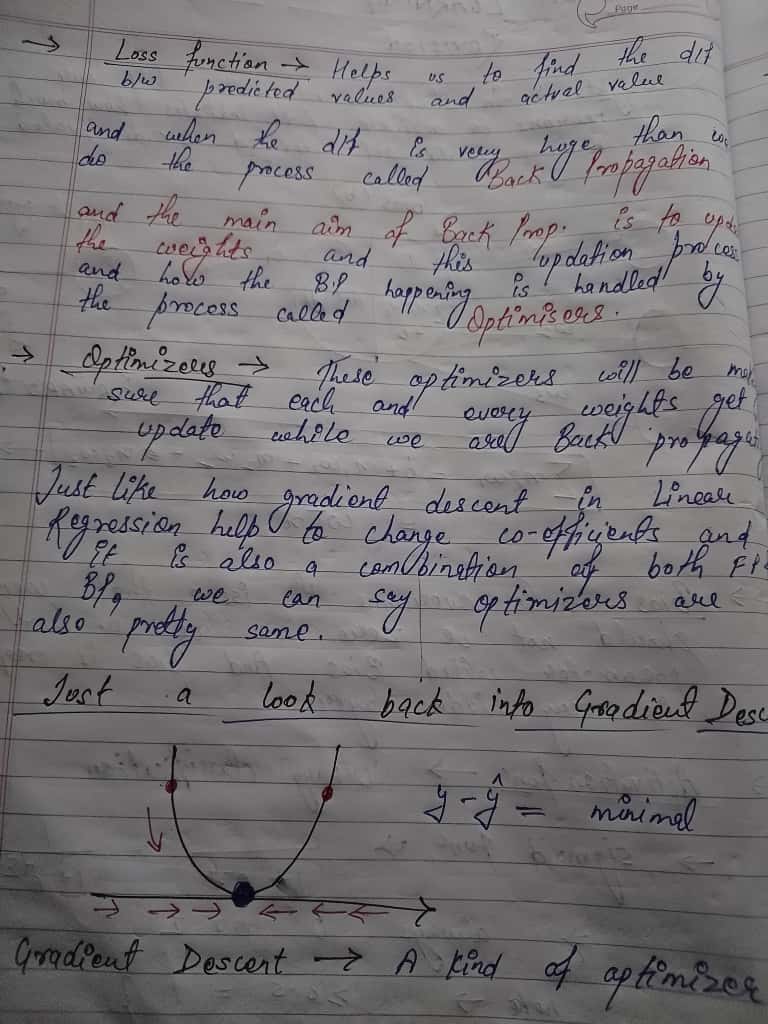 Page
→ Loss function → Helps us to find the dif
b/w predicted values and actual value
and when the dif is very huge than we
do the process called Back Propagation
and the main aim of Back Prop. is to upd
the weights and this updation proces
and how the B.P happening is handled by
the process called Optimisers.
→ Optimizers → These optimizers will be
sure that each and every weights get
update while we are Back propagat
Just like how gradient descent in Linear
Regression help to change co-efficients and
it is also a combination of both FP
BP, we can say optimizers are
also pretty same.
Just a look back into Gradient Desc
y - ŷ = minimal
Gradient Descent → A kind of optimizer